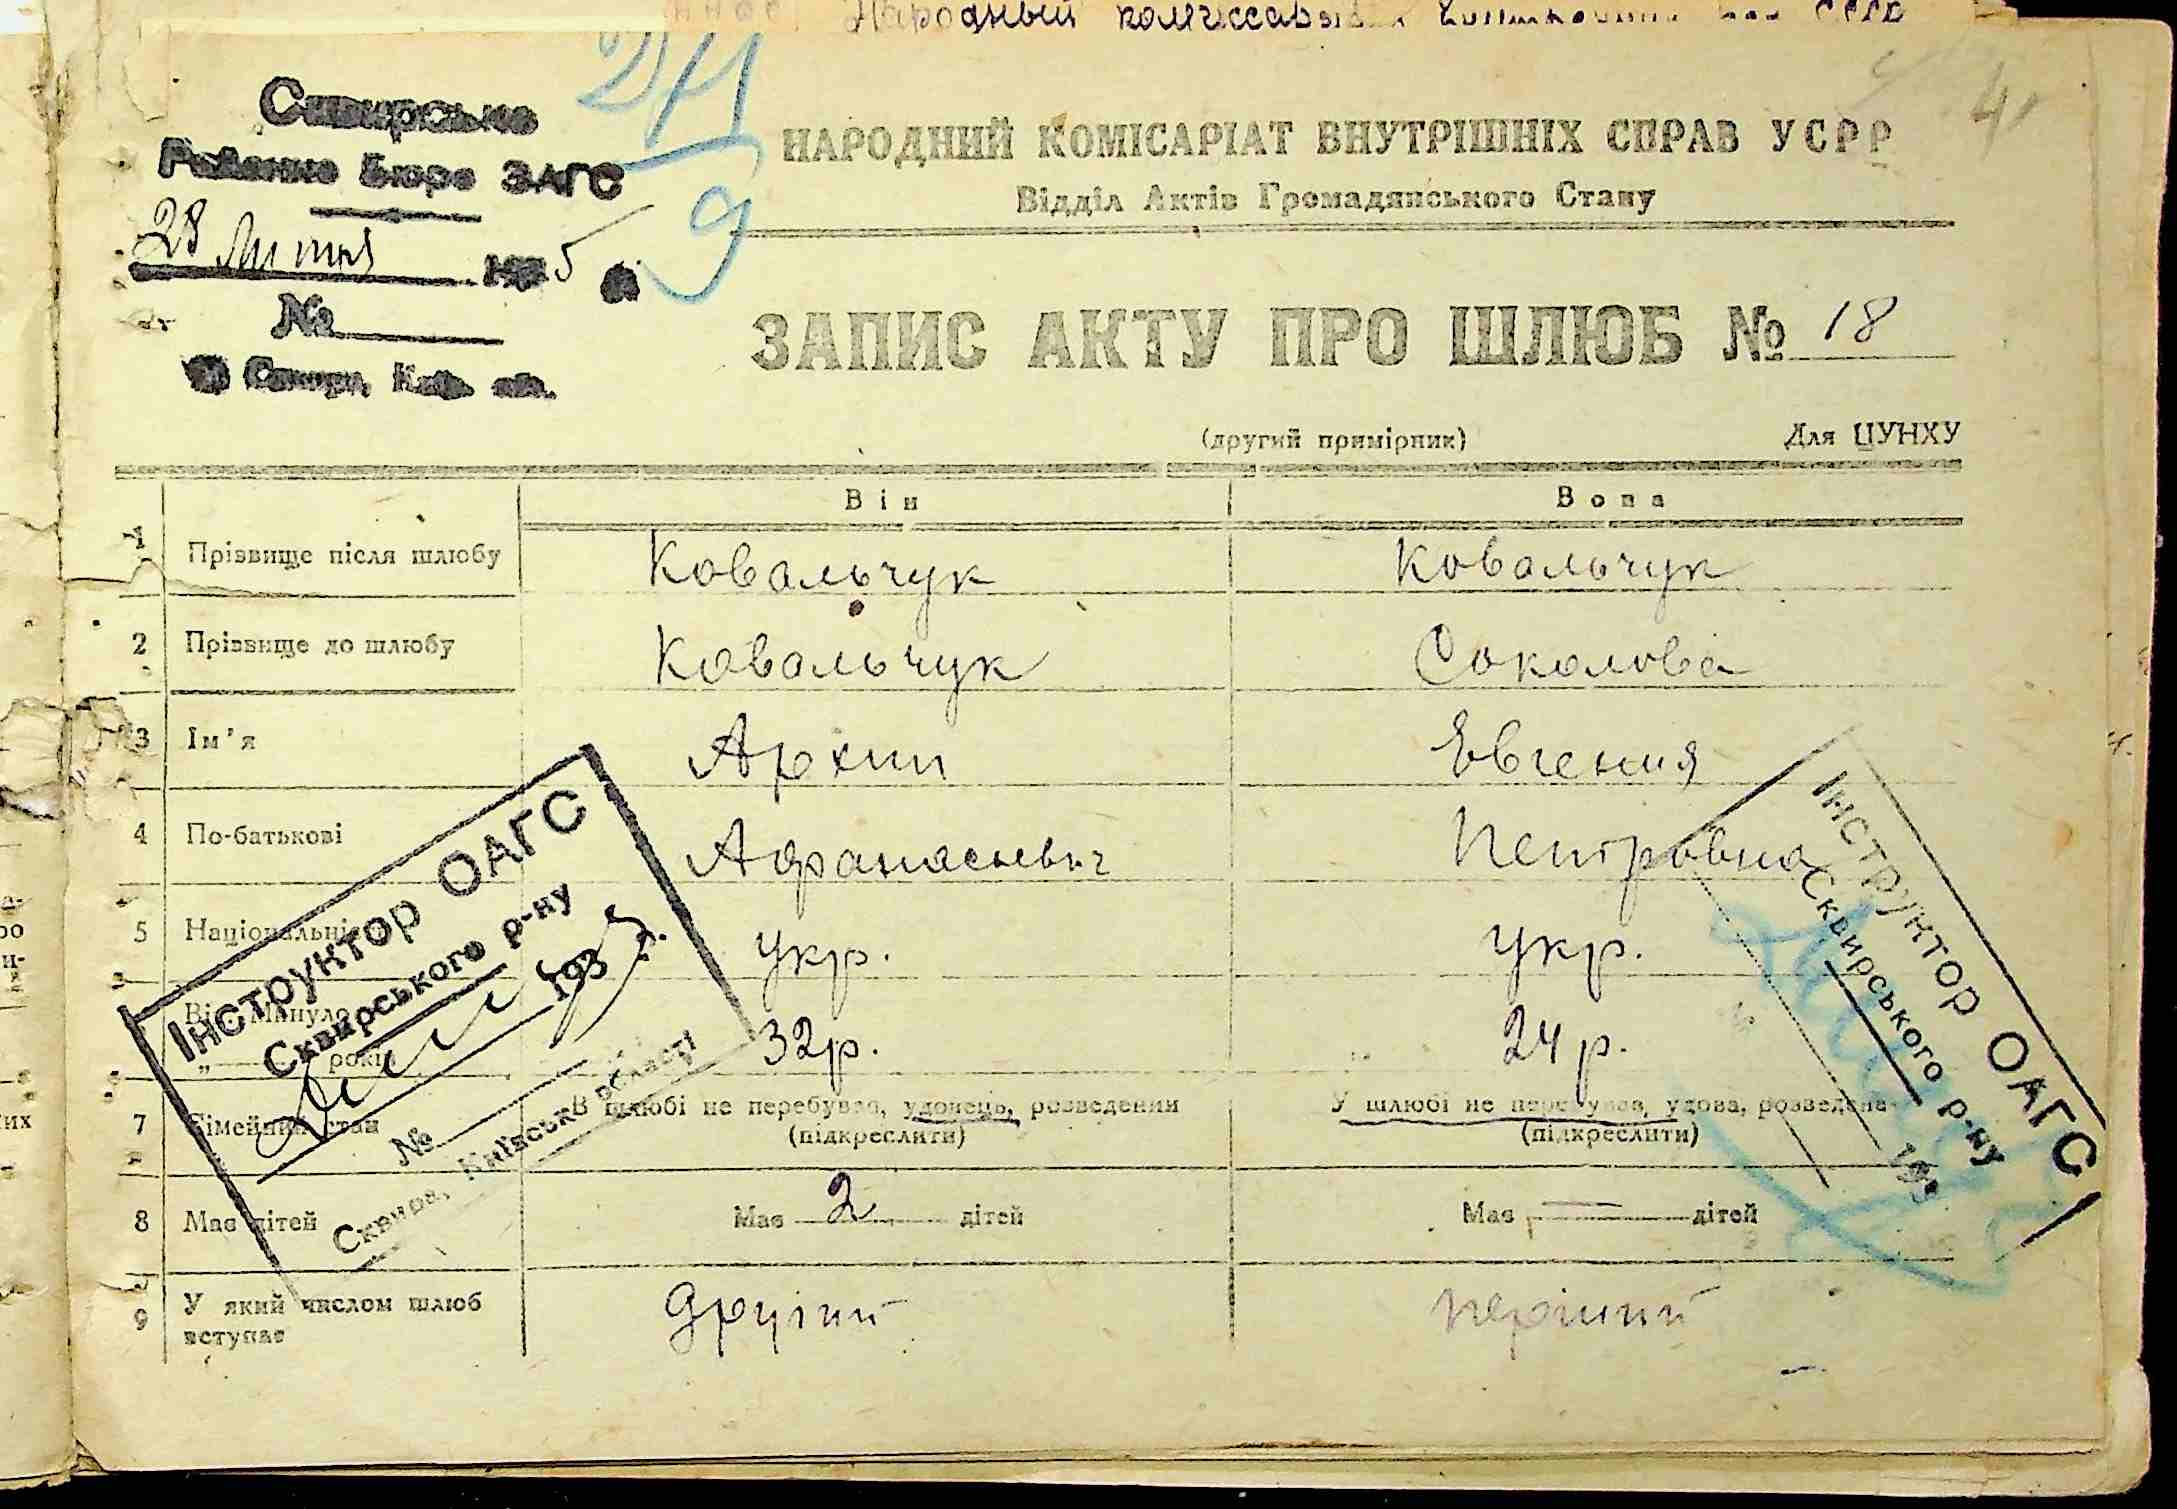 Народный комиссар
4
24
9
Сквирське
Районне Бюро ЗАГС
28 Лютня 1935
№
Сквира, Київ. обл.
НАРОДНИЙ КОМІСАРІАТ ВНУТРІШНІХ СПРАВ УСРР
Відділ Актів Громадянського Стану
ЗАПИС АКТУ ПРО ШЛЮБ № 18
(другий примірник) Для ЦУНХУ
Він Вона
1 Прізвище після шлюбу Ковальчук Ковальчук
2 Прізвище до шлюбу Ковальчук Соколова
3 Ім'я Архип Евгения
4 По-батькові Афанасиевич Петровна
5 Національність укр. укр.
Вік: Минуло
„ років 32р. 24 р.
7 Сімейний стан В шлюбі не перебував, удовець, розведений У шлюбі не перебувала, удова, розведена
(підкреслити) (підкреслити)
8 Має дітей Має 2 дітей Має — дітей
9 У який числом шлюб вступає другий перший
Інструктор ОАГС
Сквирського р-ну
193 р.
№
Сквира, Київської області
Інструктор ОАГС
Сквирського р-ну
193